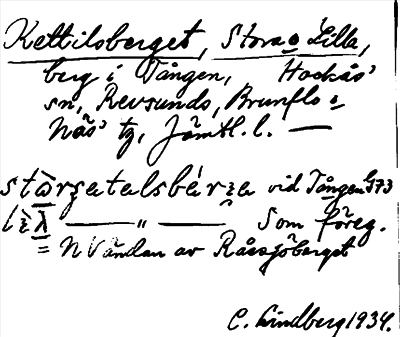 Kettilsberget, Stora o Lilla,
berg i Vången, Hackås'
sn, Revsunds, Brunflo o
Näs' tg, Jämtl. l. —
vid Tången 573
— " — Som föreg.
= N Vändan av Råssjöberget
C. Lindberg 1934.